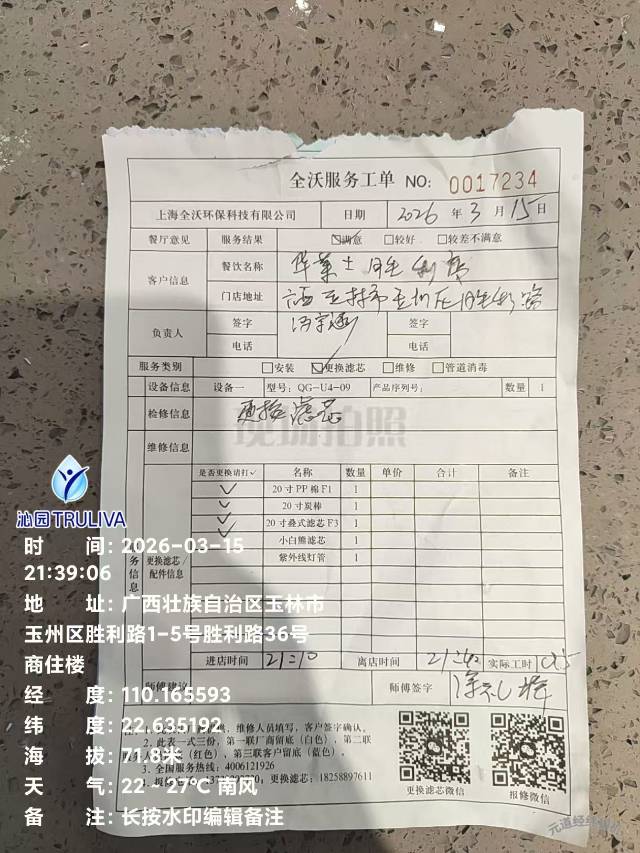 全沃服务工单 NO: 0017234
上海全沃环保科技有限公司 日期 2026 年 3 月 15 日
餐厅意见 服务结果 ☑满意 □较好 □较差不满意
客户信息 餐饮名称 华莱士胜利店
门店地址 玉林市玉州区胜利路
负责人 签字 签字
电话 电话
服务类别 □安装 ☑更换滤芯 □维修 □管道消毒
设备信息 设备一 型号: QG-U4-09 产品序列号: 数量 1
检修信息 更换滤芯
现场拍照
维修信息
是否更换请打✓ 名称 数量 单价 合计 备注
✓ 20寸PP棉F1 1
✓ 20寸炭棒 1
✓ 20寸叠式滤芯F3 1
✓ 小白熊滤芯 1
紫外线灯管 1
更换滤芯/
配件信息
务信息
进店时间 21:10 离店时间 21:42 实际工时 0.5
师傅建议 师傅签字
维修人员填写，客户签字确认。
2. 此表一式三份，第一联厂商留底（白色），第二联
（红色），第三联客户留底（蓝色）。
3. 全国服务热线: 4006121926
更换滤芯: 18258897611
更换滤芯微信 报修微信
沁园TRULIVA
时 间: 2026-03-15
21:39:06
地 址: 广西壮族自治区玉林市
玉州区胜利路1-5号胜利路36号
商住楼
经 度: 110.165593
纬 度: 22.635192
海 拔: 71.8米
天 气: 22~27℃ 南风
备 注: 长按水印编辑备注